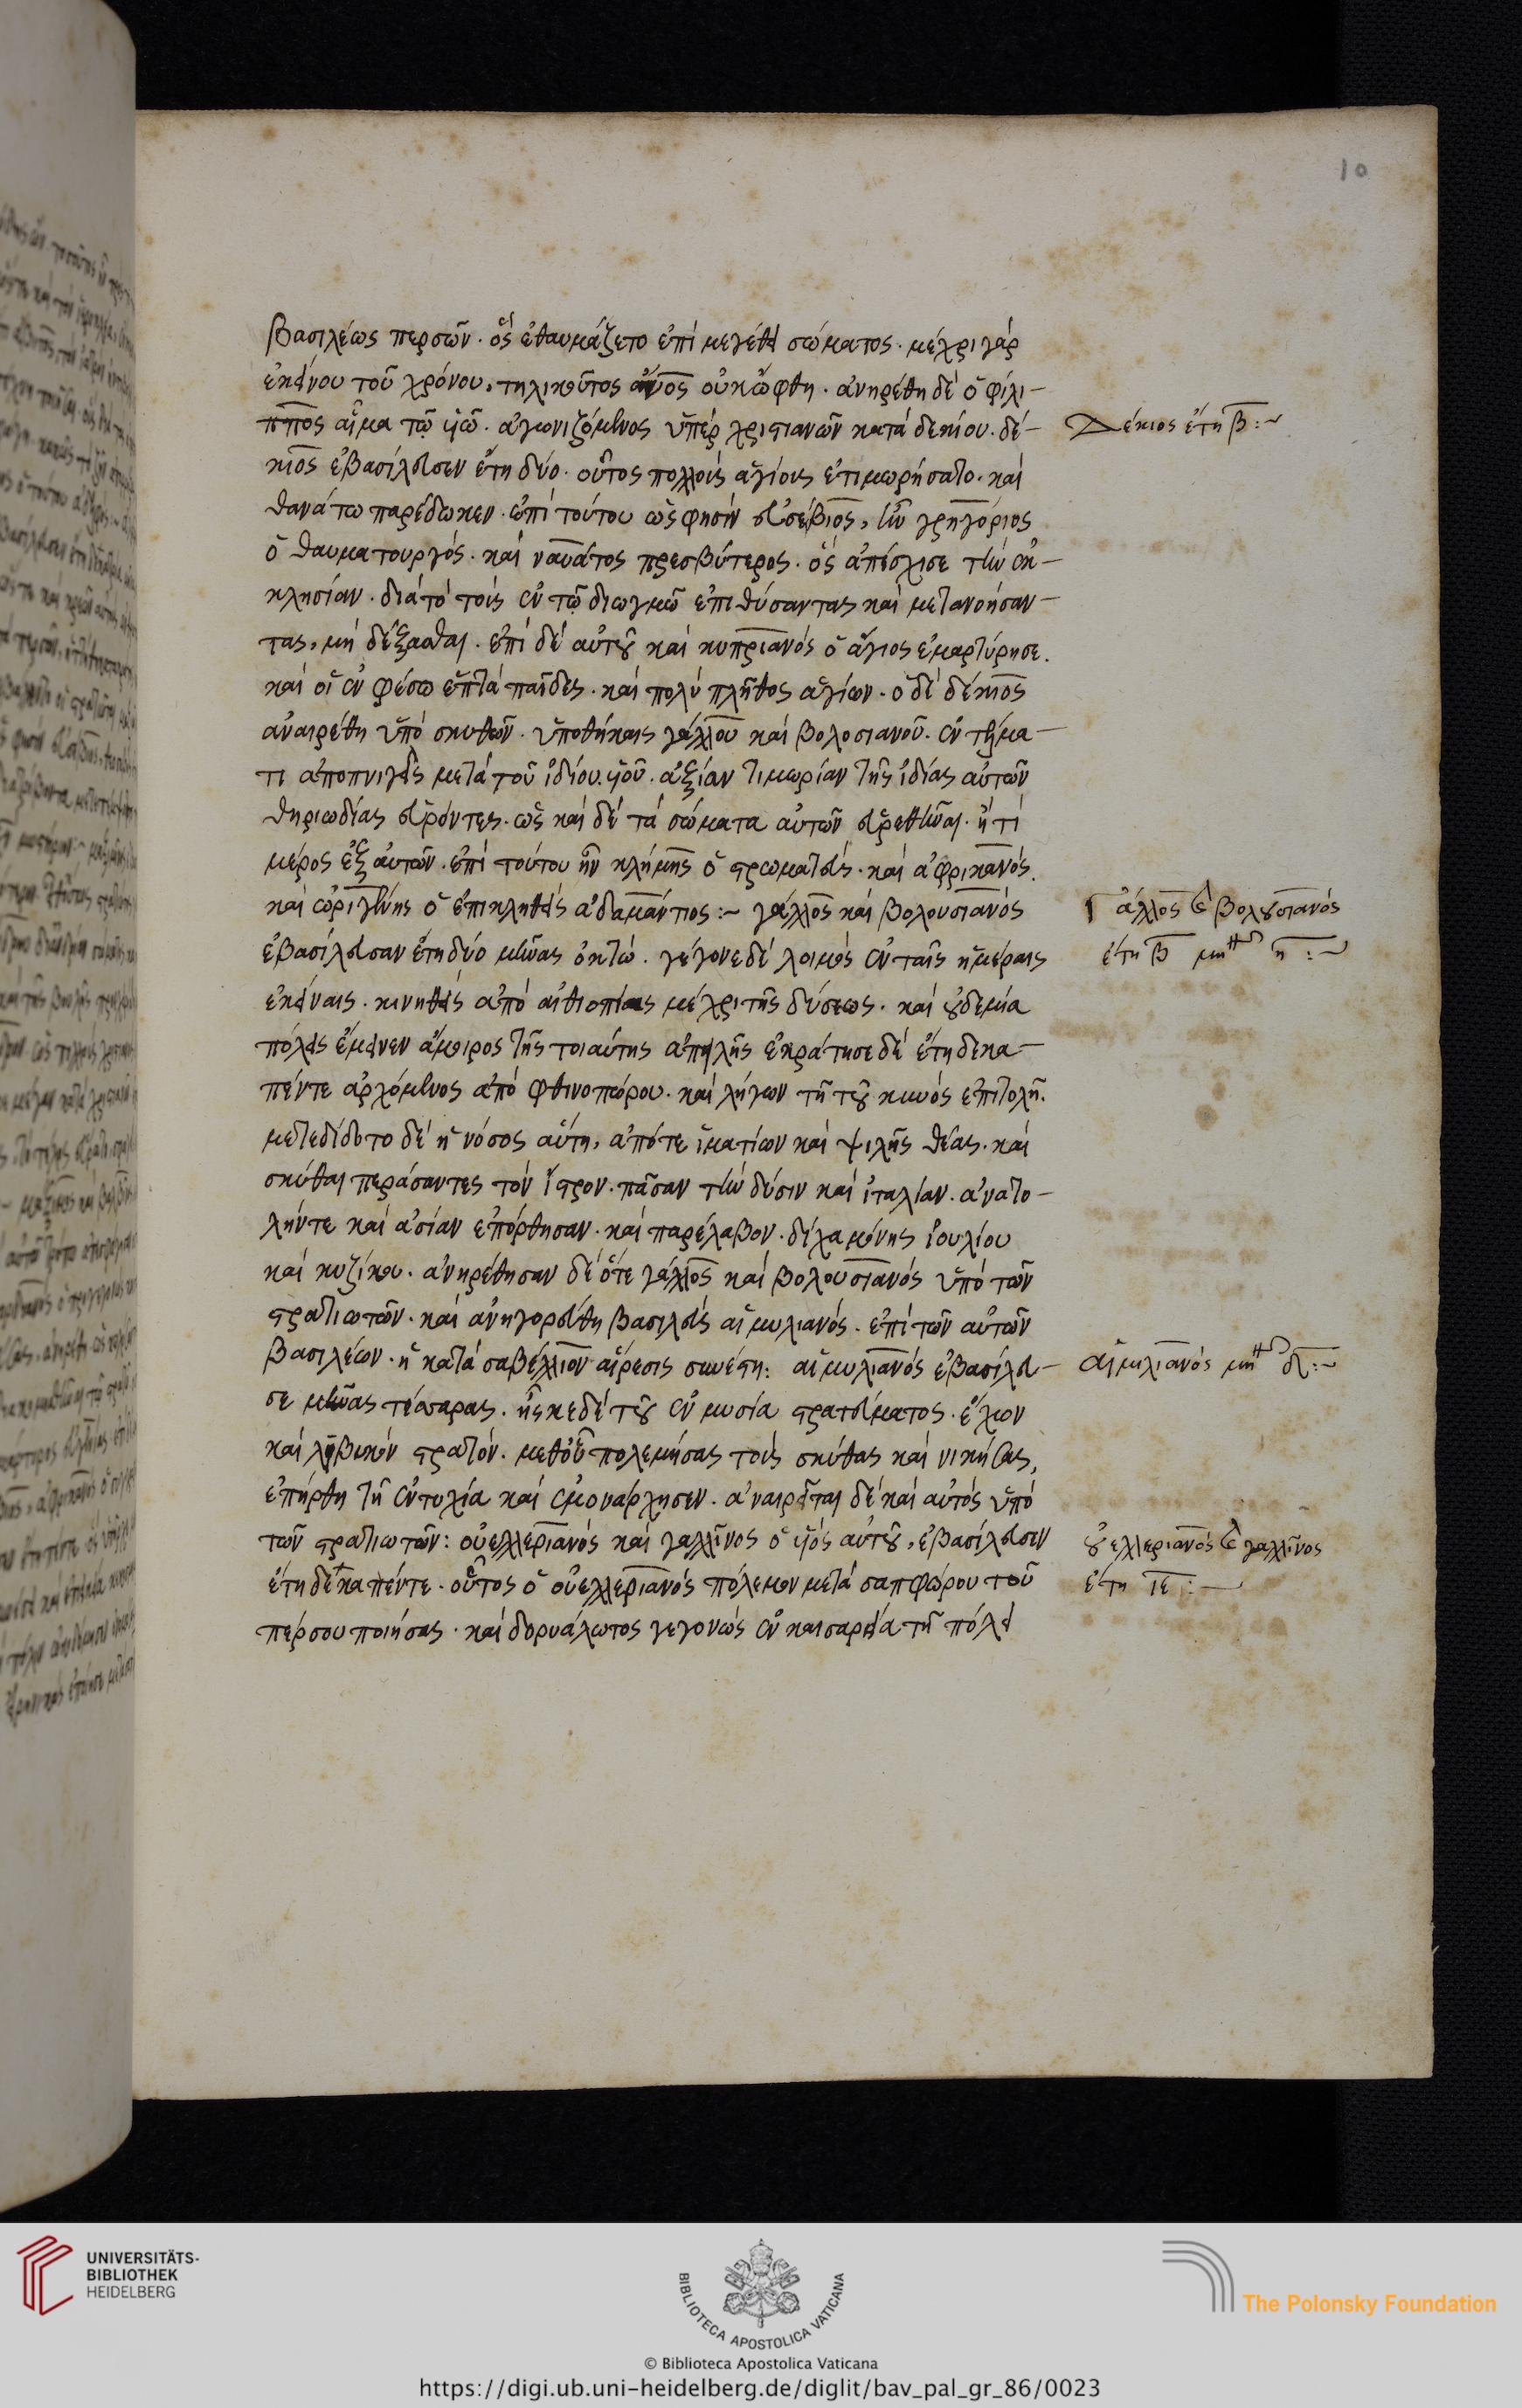 10
βασιλέως περσῶν· ὃς ἐθαυμάζετο ἐπὶ μεγέθει σώματος· μέχρι γὰρ
ἐκείνου τοῦ χρόνου, τηλικοῦτος ἄνος οὐκ ὤφθη· ἀνηρέθη δὲ ὁ φίλι-
ππος ἅμα τῷ υἱῷ· ἀγωνιζόμενος ὑπὲρ χριστιανῶν κατὰ δεκίου· δέ-
Δέκιος ἔτη β:~
κιος ἐβασίλευσεν ἔτη δύο· οὗτος πολλοὺς ἁγίους ἐτιμωρήσατο· καὶ
θανάτω παρέδωκεν· ἐπὶ τούτου ὥς φησιν εὐσέβιος, ἦν γρηγόριος
ὁ θαυματουργός· καὶ ναυάτος πρεσβύτερος· ὃς ἀπέσχισε τὴν ἐκ-
κλησίαν· διὰ τὸ τοὺς ἐν τῷ διωγμῶ ἐπιθύσαντας καὶ μετανοήσαν-
τας, μὴ δέξασθαι· ἐπὶ δὲ αὐτοῦ καὶ κυπριανὸς ὁ ἅγιος ἐμαρτύρησε.
καὶ οἱ ἐν φέσω ἑπτὰ παῖδες· καὶ πολὺ πλῆθος ἁγίων· ὁ δὲ δέκιος
ἀναιρέθη ὑπὸ σκυθῶν· ὑποθήκαις γάλλου καὶ βολοσιανοῦ· ἐν τέλμα-
τι ἀποπνιγεὶς μετὰ τοῦ ἰδίου υἱοῦ· ἀξίαν τιμωρίαν τῆς ἰδίας αὐτῶν
θηριωδίας εὑρόντες· ὡς καὶ δὲ τὰ σώματα αὐτῶν εὑρεθῆναι· ἤ τι
μέρος ἐξ αὐτῶν· ἐπὶ τούτου ἦν κλήμης ὁ στρωματεύς· καὶ ἀφρικανός.
καὶ ὠριγένης ὁ ἐπικληθεὶς ἀδαμάντιος:~ γάλλος καὶ βολουσιανὸς
Γάλλος καὶ βολουσιανὸς
ἐβασίλευσαν ἔτη δύο μῆνας ὀκτώ· γέγονε δὲ λοιμὸς ἐν ταῖς ἡμέραις
ἔτη β μην η:~
ἐκείναις· κινηθεὶς ἀπὸ αἰθιοπίας μέχρι τῆς δύσεως· καὶ οὐδεμία
πόλις ἔμεινεν ἄμοιρος τῆς τοιαύτης ἀπειλῆς ἐκράτησε δὲ ἔτη δεκα-
πέντε ἀρχόμενος ἀπὸ φθινοπώρου· καὶ λήγων τῇ τοῦ κυνὸς ἐπιτολῇ.
μετεδίδοτο δὲ ἡ νόσος αὕτη, ἀπό τε ἱματίων καὶ ψιλῆς θέας· καὶ
σκύθαι περάσαντες τὸν ἴστρον· πᾶσαν τὴν δύσιν καὶ ἰταλίαν· ἀνατο-
λήν τε καὶ ἀσίαν ἐπόρθησαν· καὶ παρέλαβον· δίχα μόνης ἰουλίου
καὶ κυζίκου· ἀνηρέθησαν δὲ ὅτε γάλλος καὶ βολουσιανὸς ὑπὸ τῶν
στρατιωτῶν· καὶ ἀνηγορεύθη βασιλεὺς αἰμυλιανός· ἐπὶ τῶν αὐτῶν
βασιλέων· ἡ κατὰ σαβέλλιον αἵρεσις συνέστη: αἰμυλιανὸς ἐβασίλευ-
αἰμιλιανὸς μην δ:~
σε μῆνας τέσσαρας· ἧρκε δὲ τοῦ ἐν μυσία στρατεύματος· ἔχων
καὶ λιβυκὸν στρατόν· μεθ' οὗ πολεμήσας τοὺς σκύθας καὶ νικήσας,
ἐπήρθη τῇ εὐτυχία καὶ ἐμονάρχησεν· ἀναιρεῖται δὲ καὶ αὐτὸς ὑπὸ
τῶν στρατιωτῶν: οὐελλεριανὸς καὶ γαλλῖνος ὁ υἱὸς αὐτοῦ, ἐβασίλευσεν
οὐελλεριανὸς καὶ γαλλῖνος
ἔτη δεκαπέντε· οὗτος ὁ οὐελλεριανὸς πόλεμον μετὰ σαπφώρου τοῦ
ἔτη ιε:~
πέρσου ποιήσας· καὶ δορυάλωτος γεγονὼς ἐν καισαρεία τῇ πόλει
UNIVERSITÄTS-
BIBLIOTHEK
HEIDELBERG
BIBLIOTECA APOSTOLICA VATICANA
The Polonsky Foundation
© Biblioteca Apostolica Vaticana
https://digi.ub.uni-heidelberg.de/diglit/bav_pal_gr_86/0023